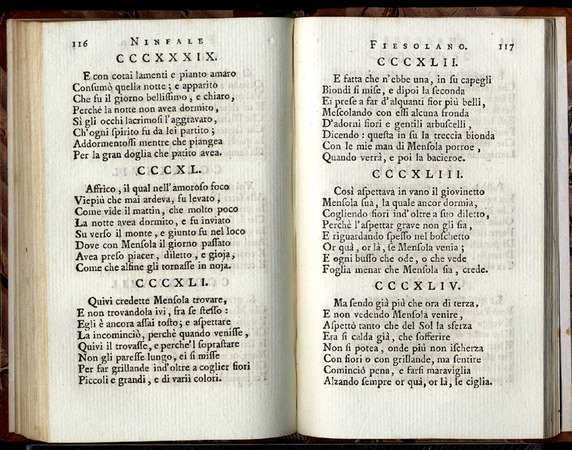 116 NINFALE
CCCXXXIX.
E con cotai lamenti e pianto amaro
Consumò quella notte; e apparito
Che fu il giorno bellissimo, e chiaro,
Perchè la notte non avea dormito,
Sì gli occhi lacrimosi l'aggravaro,
Ch'ogni spirito fu da lei partito;
Addormentossi mentre che piangea
Per la gran doglia che patito avea.
CCCXL.
Affrico, il qual nell'amoroso foco
Viepiù che mai ardeva, fu levato,
Come vide il mattin, che molto poco
La notte avea dormito, e fu inviato
Su verso il monte, e giunto fu nel loco
Dove con Mensola il giorno passato
Avea preso piacer, diletto, e gioja,
Come che alfine gli tornasse in noja.
CCCXLI.
Quivi credette Mensola trovare,
E non trovandola ivi, fra se stesso:
Egli è ancora assai tosto; e aspettare
La incominciò, perchè quando venisse,
Quivi il trovasse, e perchè'l soprastare
Non gli paresse lungo, ei si misse
Per far grillande ind'oltre a coglier fiori
Piccoli e grandi, e di varii colori.
FIESOLANO. 117
CCCXLII.
E fatta che n'ebbe una, in su capegli
Biondi si mise, e dipoi la seconda
Ei prese a far d'alquanti fior più belli,
Mescolando con essi alcuna fronda
D'adorni fiori e gentili arbuscelli,
Dicendo: questa in su la treccia bionda
Con le mie man di Mensola porroe,
Quando verrà, e poi la bacieroe.
CCCXLIII.
Così aspettava in vano il giovinetto
Mensola sua, la quale ancor dormia,
Cogliendo fiori ind'oltre a suo diletto,
Perchè l'aspettar grave non gli sia,
E riguardando spesso nel boschetto
Or quà, or là, se Mensola venia;
E ogni busso che ode, o che vede
Foglia menar che Mensola sia, crede.
CCCXLIV.
Ma sendo già più che ora di terza,
E non vedendo Mensola venire,
Aspettò tanto che del Sol la sferza
Era sì calda già, che sofferire
Non si potea, onde più non ischerza
Con fiori o con grillande, ma sentire
Cominciò pena, e farsi maraviglia
Alzando sempre or quà, or là, le ciglia.